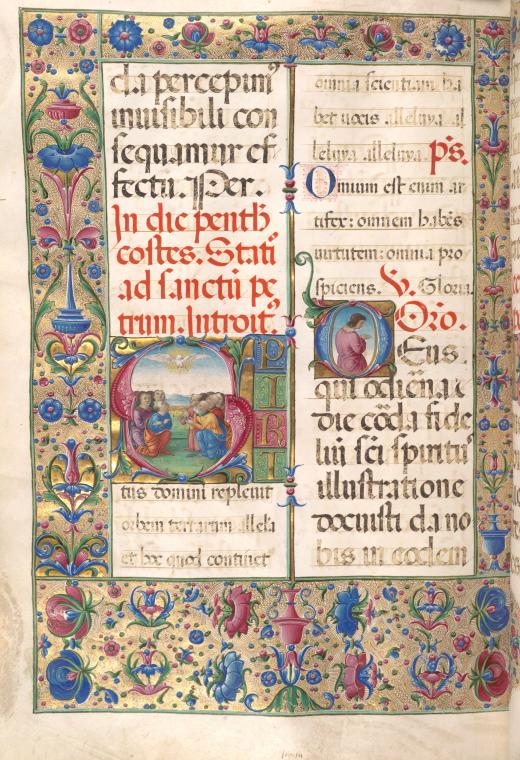 da percepim᷒
inuisibili con
sequamur ef
fectu. Per.
In die penth̄
costes. Stati
ad sanctū pe
trum. Introit᷒.
SPIRI
tus domini repleuit
orbem terrarum allela
et hoc quod continet
omnia scientiam ha
bet uocis alleluya al
leluya alleluya. p̄s.
Omnium est enim ar
tifex: omnem habēs
uirtutem: omnia pro
spiciens. V. Gloria.
Oro̅.
Deus
qui odiēna
die corda fide
liū sc̄i spiritus
illustratione
docuisti da no
bis in eodem